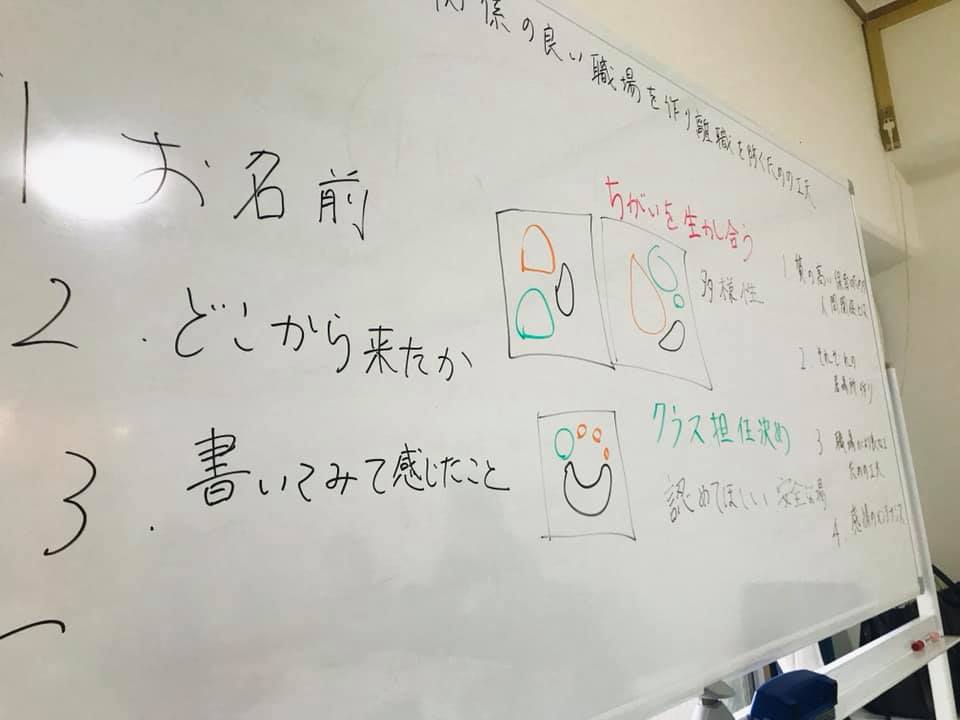 係の良い職場を作り離職を防ぐための工夫
1 お名前
2.どこから来たか
3.書いてみて感じたこと
ちがいを生かし合う
多様性
クラス担任決め
認めてほしい 安全な場
1 質の高い保育のための
人間関係とは
2. それぞれの
居場所作り
3 職場がより良くなる
ための工夫
4. 感情のメンテナンス